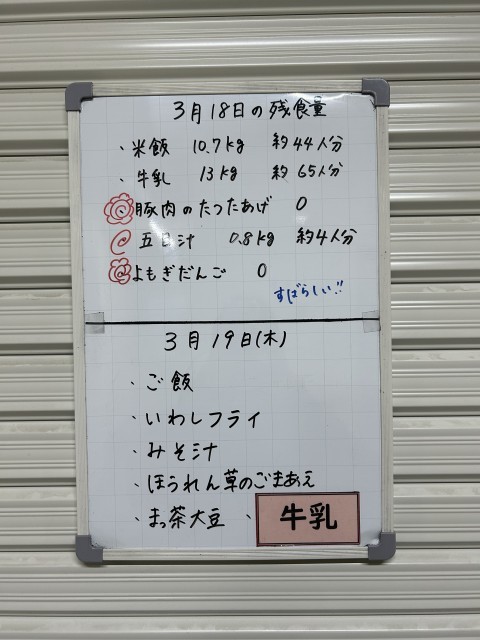 3月18日の残食量
・米飯 10.7kg 約44人分
・牛乳 13kg 約65人分
豚肉のたつたあげ 0
五目汁 0.8kg 約4人分
よもぎだんご 0
すばらしい!!
3月19日(木)
・ご飯
・いわしフライ
・みそ汁
・ほうれん草のごまあえ
・まっ茶大豆 、 牛乳